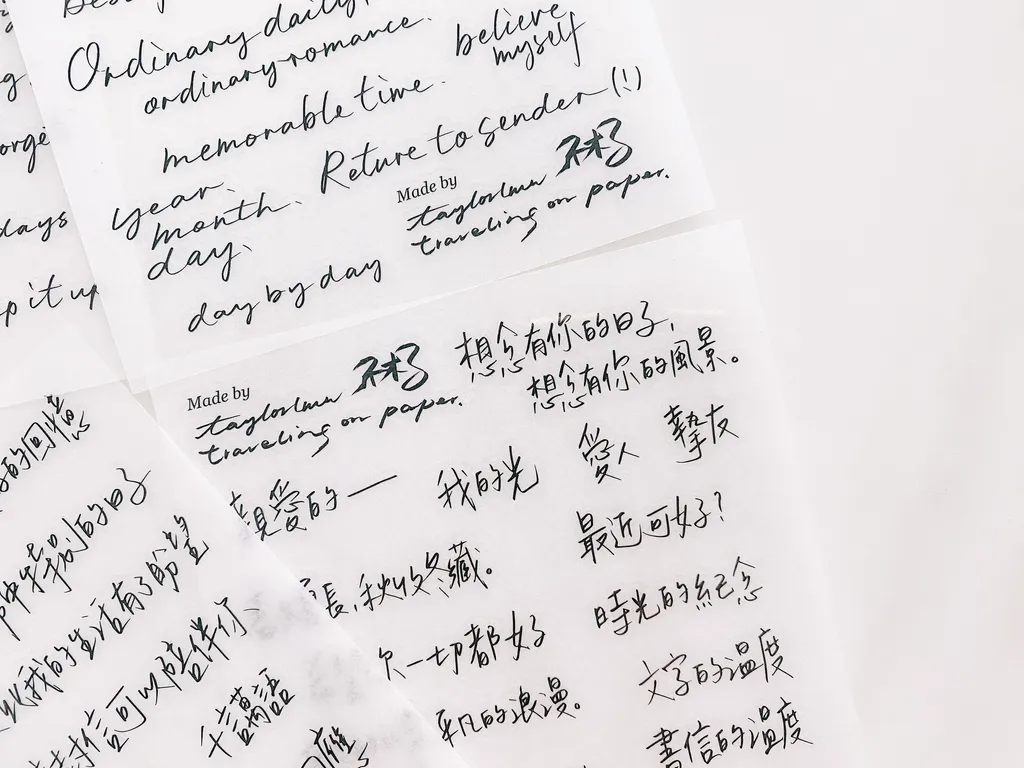 Ordinary daily,
ordinary romance.
believe
myself
memorable time.
Reture to sender (!)
year、
month、
day、
day by day
Made by
taylorlmw
traveling on paper.
orge
days
p it up
想念有你的日子,
想念有你的風景。
Made by
taylorlmw
traveling on paper.
親愛的一
我的光
愛人
摯友
最近可好?
長,秋收冬藏。
時光的紀念
一切都好
文字的溫度
凡的浪漫。
書信的溫度
的回憶
特別的日子
我的生活有了盼望
信可以陪伴你、
千言萬語